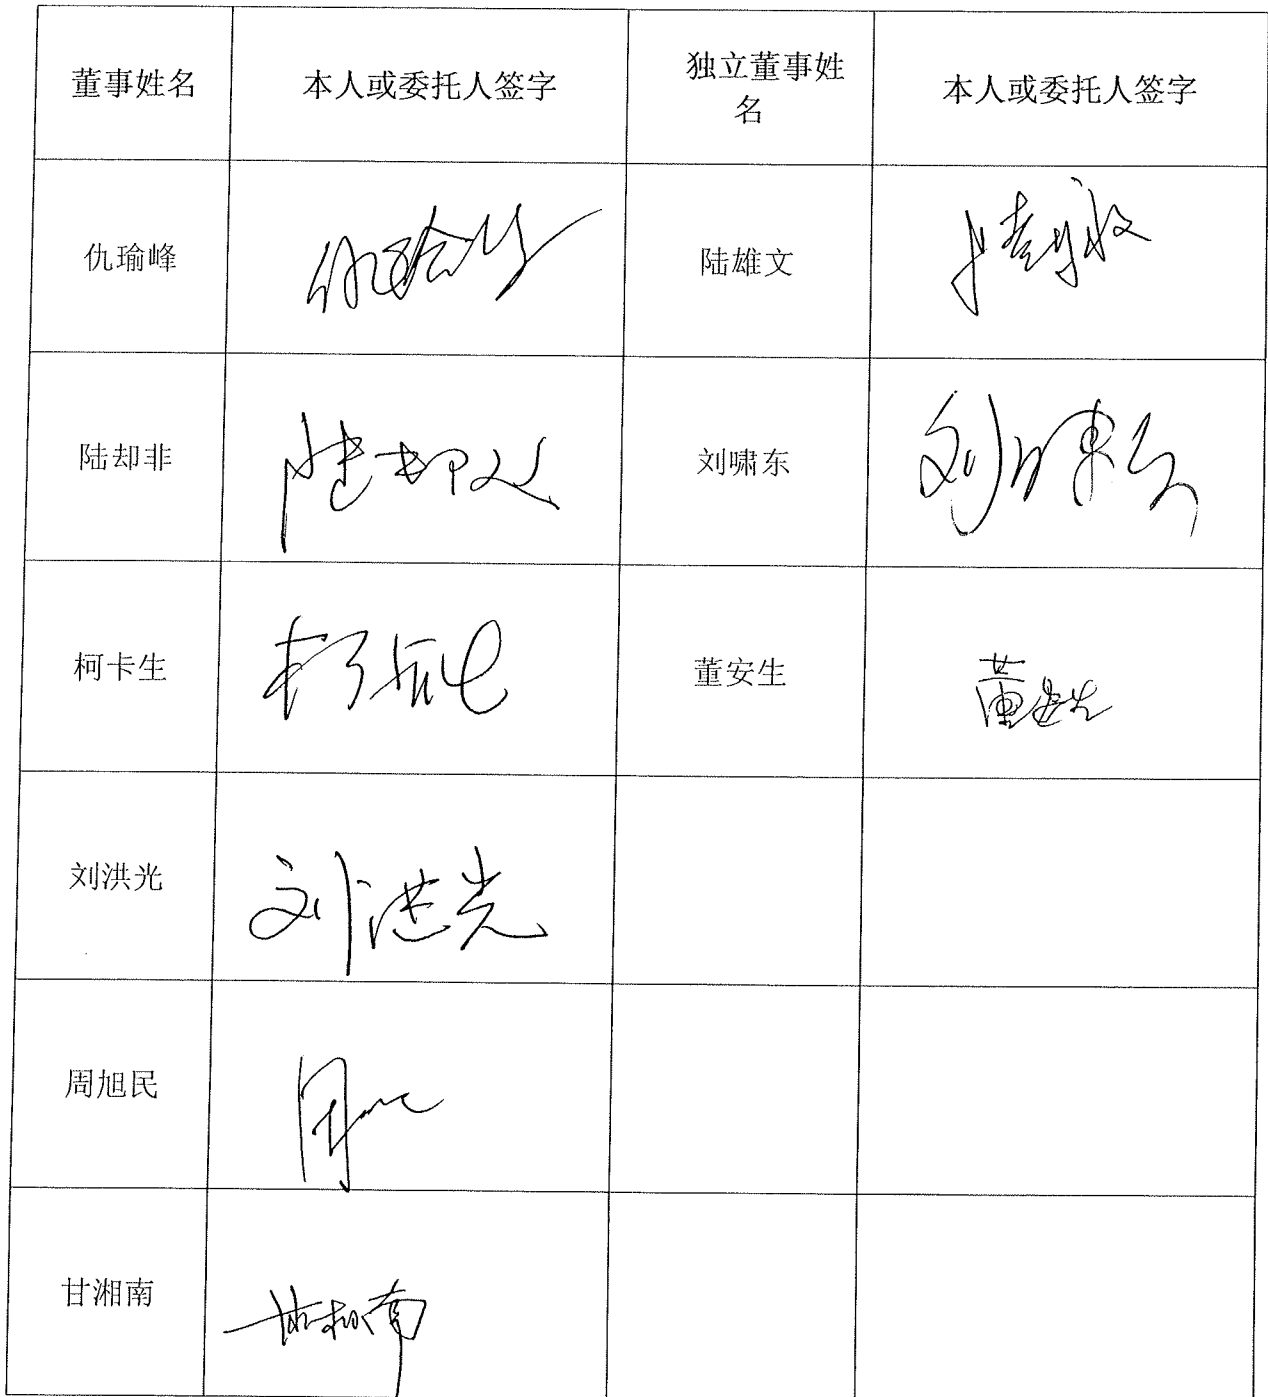 董事姓名
本人或委托人签字
独立董事姓
名
本人或委托人签字
仇瑜峰
仇瑜峰
陆雄文
陆雄文
陆却非
陆却非
刘啸东
刘啸东
柯卡生
柯卡生
董安生
董安生
刘洪光
刘洪光
周旭民
甘湘南
甘湘南